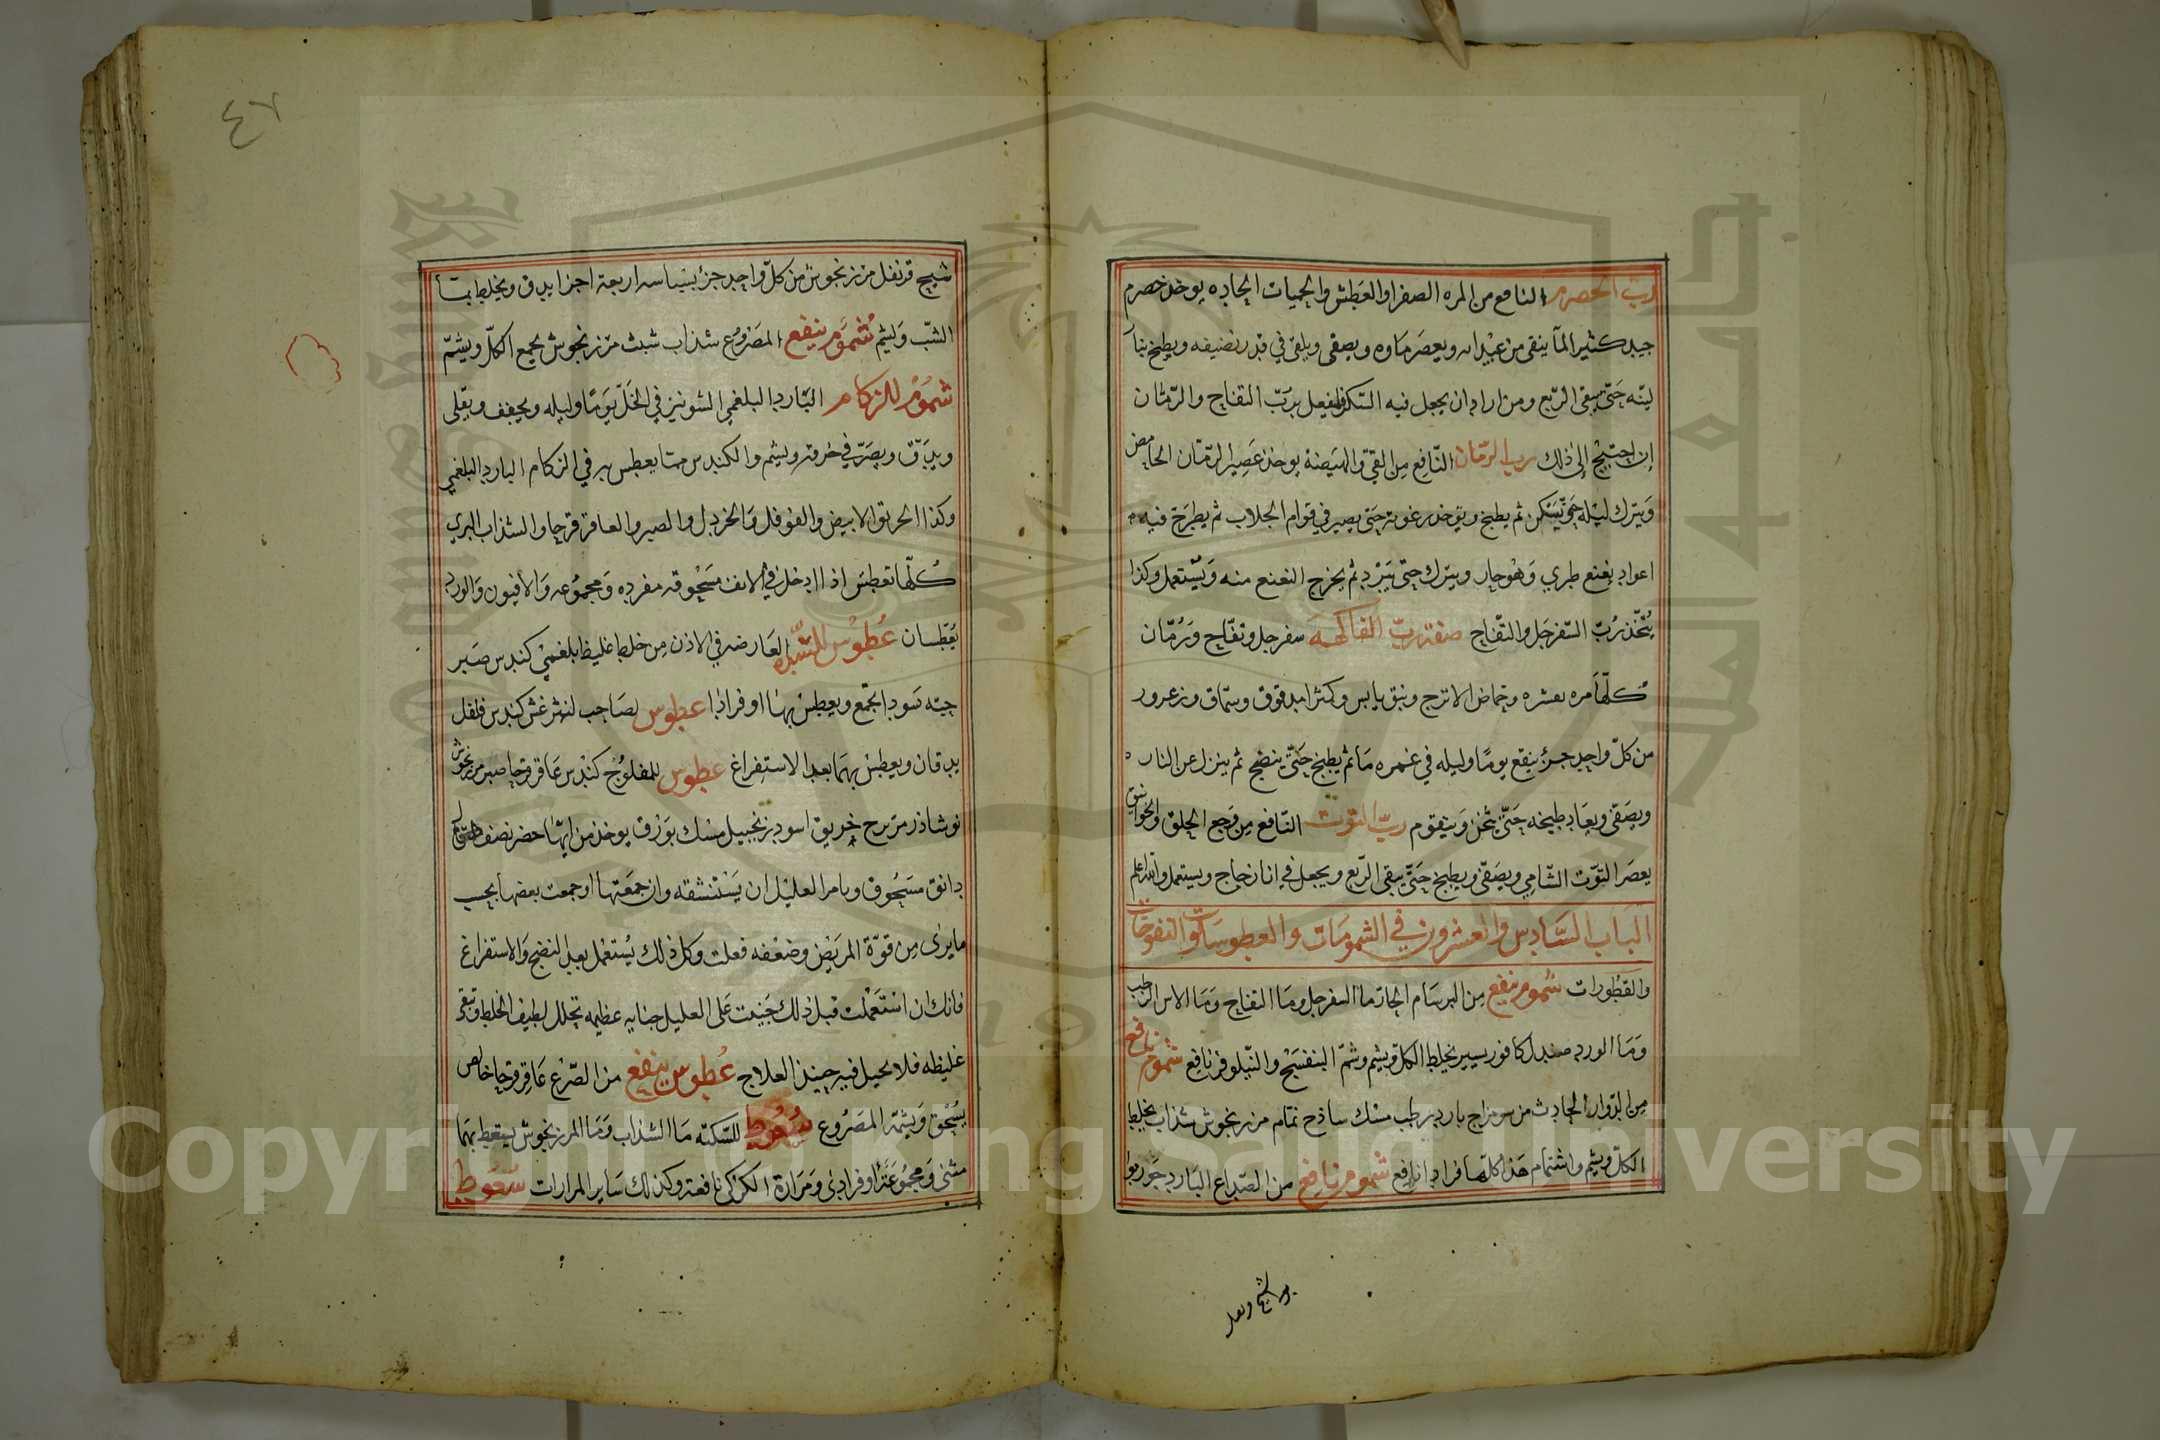 رب الحصرم النافع من المره الصفرا والعطش والحميات الحاده يوخذ حصرم
جيد كثير المآ ينقى من عيدانه ويعصر ماوه ويصفى ويلقى في قدر نضيفه ويطبخ بنا
لينه حتى يبقى الربع ومن اراد ان يجعل فيه السكر فليفعل برب التفاح والرمان
ان احتيج الى ذلك رب الرمان النافع من القي والهيضة يوخذ عصير الرمان الحامض
ويترك ليلة حتى يسكن ثم يطبخ ويوخذ رغوته حتى يصير في قوام الجلاب ثم يطرح فيه
اعواد نعنع طري وهو حار ويترك حتى يبرد ثم يخرج النعنع منه ويستعمل وكذا
يتخذ رب السفرجل والتفاح صفة رب الفاكهة سفرجل وتفاح ورمان
كلها مره بعشره وحماض الاترج ونبق يابس وكمثرا مدقوق وسماق وزعرور
من كل واحد جزء ينقع يوما وليله في غمره ما ثم يطبخ حتى ينضج ثم ينزل عن النار
ويصفى ويعاد طبخه حتى يثخن ويتقوم رب التوت النافع من وجع الحلق والخوانيق
يعصر التوت الشامي ويصفى ويطبخ حتى يبقى الربع ويجعل في انا زجاج ويستعمل والله اعلم
الباب السادس والعشرون في الشمومات والعطوسات والنفوخات
والقطورات شموم ينفع من البرسام الحار ما السفرجل وما التفاح وما الاس الرطب
وما الورد صندل كافور يسير يخلط الكل ويشم وشم البنفسج والنيلوفر نافع شموم نافع
من الدوار الحادث من سو مزاج بارد رطب مسك ساذج نمام مرزنجوش شذاب يخلط
الكل ويشم واشتمام هذا كلها فرادا نافع شموم نافع من الصداع البارد جوزبوا
٤٧
شيح قرنفل مرزنجوش من كل واحد جزء بسباسه اربعة اجزا يدق ويخلط بمآ
الشب ويشم شموم ينفع المصروع شذاب شبث مرزنجوش يجمع الكل ويشم
شموم للزكام البارد البلغمي الشونيز في الخل يوما وليله ويجفف ويقلى
ويدق ويصر في خرقة ويشم والكندس مما يعطس به في الزكام البارد البلغمي
وكذا الخربق الابيض والفوفل والخردل والصبر والعاقرقرحا والشذاب البري
كلها تعطس اذا ادخل في الانف مسحوقه مفرده ومجموعه والافيون والورد
يعطسان عطوس للسدة العارضه في الاذن من خلط غليظ بلغمي كندس صبر
حبة سودا تجمع ويعطس بها او فرادا عطوس لصاحب ليثرغش كندس فلفل
يدقان ويعطس بهما بعد الاستفراغ عطوس للمفلوج كندس عاقرقرحا صبر مرزنجوش
نوشاذر خربق اسود زنجبيل مسك بورق يوخذ من ايها حضر نصف
دانق مسحوق ويامر العليل ان يستنشقه وان جمعتها او جمعت بعضها بحسب
مايرى من قوة المريض وضعفه فعلت وكل ذلك يستعمل بعد النضج والاستفراغ
فانك ان استعملت قبل ذلك جنيت على العليل جنايه عظيمه تحلل لطيف الخلط وتبقي
غليظه فلا يحيل فيه حينئذ العلاج عطوس ينفع من الصرع عاقرقرحا خالص
يسحق ويشمه المصروع سعوط للسكته ما الشذاب وما المرزنجوش يسعط بهما
مثنى ومجموعة او فرادى ومرارة الكركي نافعة وكذلك ساير المرارات سعوط
Copyright © King Saud University
1957